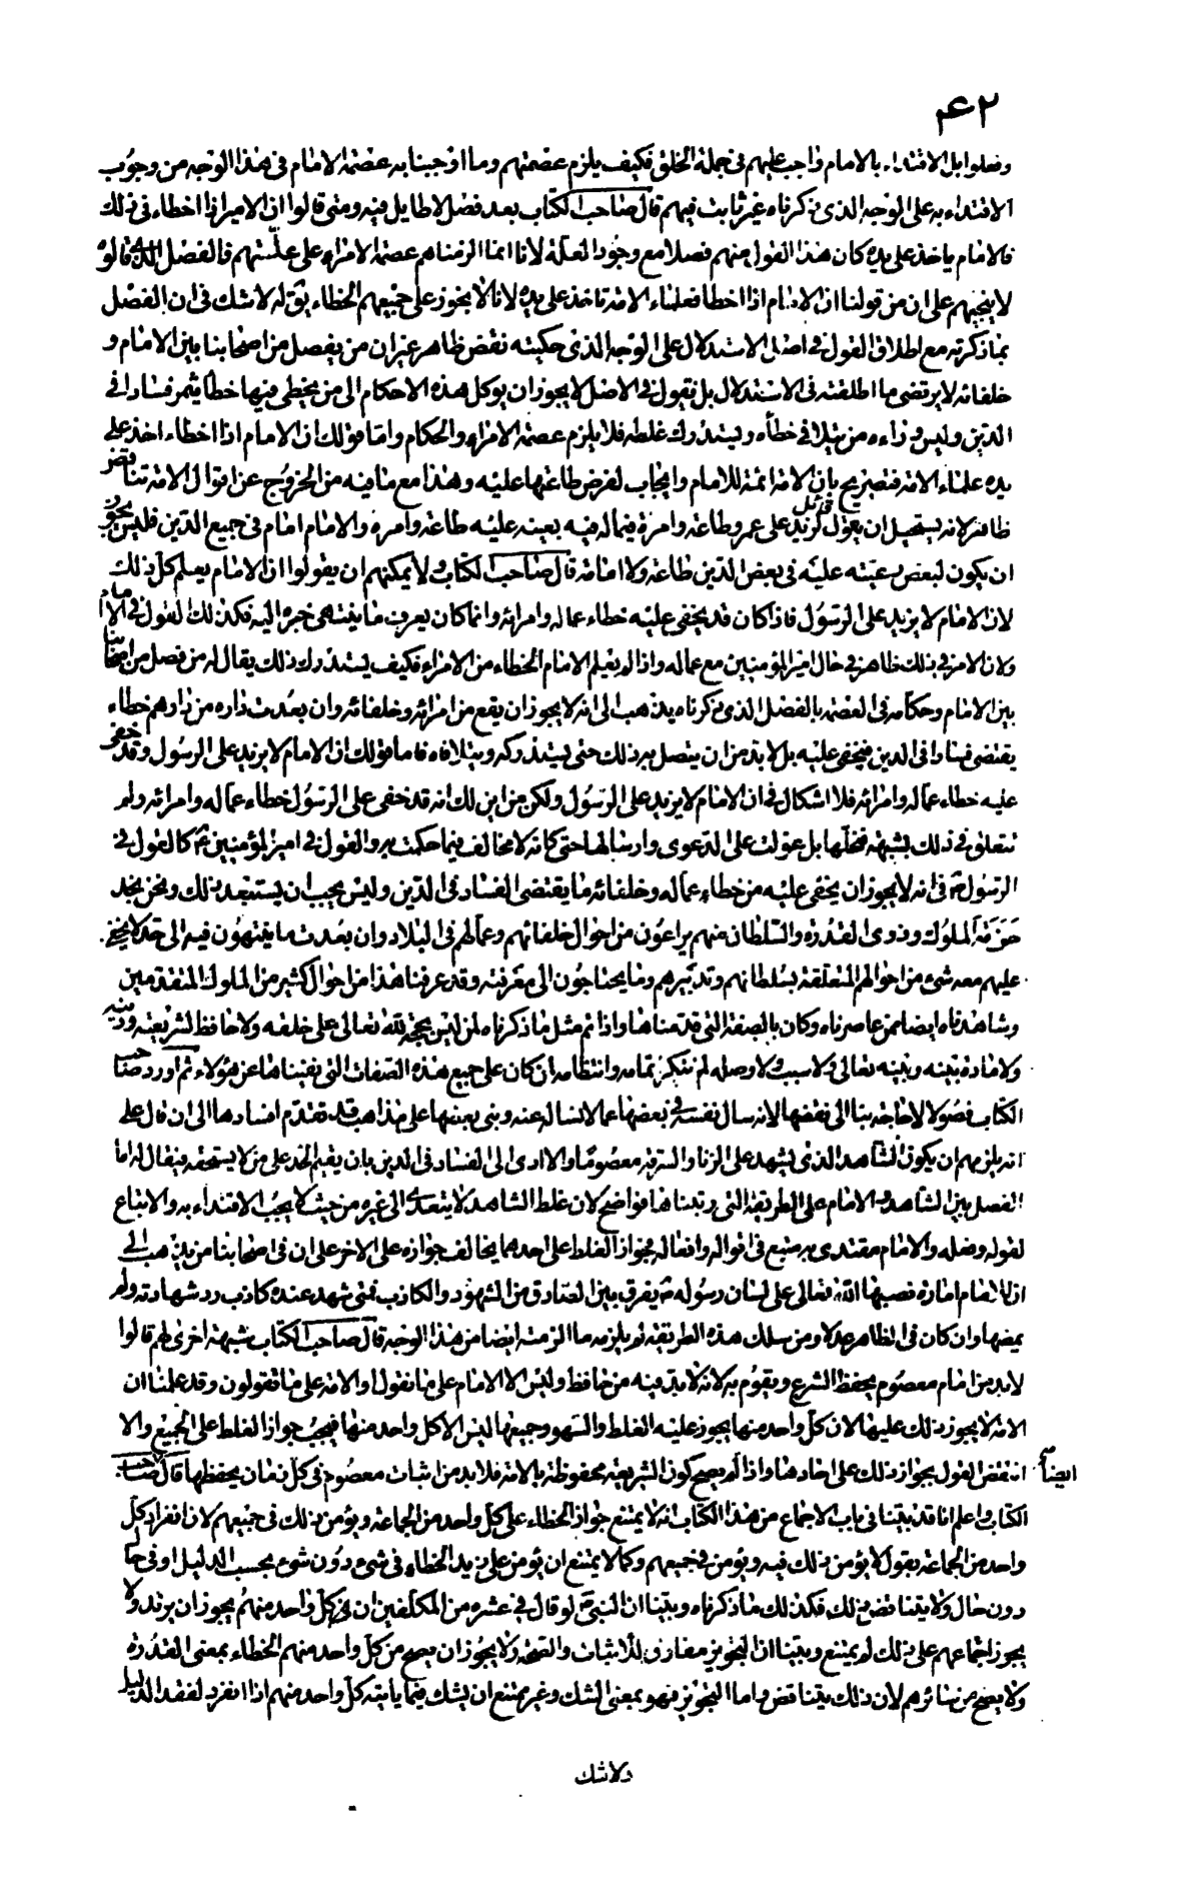 ۴۲
وضلوا بل الاقتداء بالامام واجب عليهم فى جملة الخلق فكيف يلزم عصمتهم وما اوجبنا به عصمة الامام فى هذا الوجه من وجوب
الاقتداء به على الوجه الذى ذكرناه غير ثابت فيهم قال صاحب الكتاب بعد فصل لا طايل فيه ومتى قالوا ان الامير اذا اخطاء فى ذلك
فالامام ياخذ على يده كان هذا القول منهم فصلا مع وجود العلة لانا انما الزمناهم عصمة الامراء على علتهم فالفصل الذى قالوه
لا ينجيهم على ان من قولنا ان الامام اذا اخطا فعلماء الامة تاخذ على يده لانا لا نجوز على جميعهم الخطاء يق له لا شك فى ان الفصل
بما ذكرته مع اطلاق القول فى اصل الاستدلال على الوجه الذى حكيته نقض ظاهر غير ان من يفصل من اصحابنا بين الامام و
خلفائه لا يرتضى ما اطلقته فى الاستدلال بل نقول فى الاصل لا يجوز ان يوكل هذه الاحكام الى من يخطى فيها خطأ يثمر فسادا فى
الدين وليس وراءه من يتلافى خطأه ويستدرك غلطه فلا يلزم عصمة الامراء والحكام واما قولك ان الامام اذا اخطاء اخذ على
يده علماء الامة فتصريح بان الامة ائمة للامام وايجاب لفرض طاعتها عليه وهذا مع ما فيه من الخروج عن اقوال الامة تناقض
ظاهر لانه يستحيل ان يقول قائل لزيد على عمرو طاعة وامرة فيما له فيه بعينه عليه طاعة وامرة والامام امام فى جميع الدين فليس يجوز
ان يكون لبعض رعيته عليه فى بعض الدين طاعة ولا امامة قال صاحب الكتاب ولا يمكنهم ان يقولوا ان الامام يعلم كل ذلك
لان الامام لا يزيد على الرسول فاذا كان قد يخفى عليه خطاء عماله وامرائه وانما كان يعرف ما ينتهى خبره اليه فكذلك القول فى الامام
ولان الامر فى ذلك ظاهر فى حال امير المؤمنين مع عماله واذا لم يعلم الامام الخطاء من الامراء فكيف يستدرك ذلك يقال له من فصل من اصحابنا
بين الامام وحكامه فى العصمة بالفصل الذى ذكرناه يذهب الى انه لا يجوز ان يقع من امرائه وخلفائه وان بعدت داره من دارهم خطاء
يقتضى فسادا فى الدين فيخفى عليه بل لا بد من ان يتصل به ذلك حتى يستدركه ويتلافاه فاما قولك ان الامام لا يزيد على الرسول وقد خفى
عليه خطاء عماله وامرائه فلا اشكال فى ان الامام لا يزيد على الرسول ولكن من اين لك انه قد خفى على الرسول خطاء عماله وامرائه ولم
تتعلق فى ذلك بشبهة فنحلها بل عولت على الدعوى وارسالها حتى كانه لا مخالف فيما حكمت به والقول فى امير المؤمنين ع كالقول فى
الرسول ص فى انه لا يجوز ان يخفى عليه من خطاء عماله وخلفائه ما يقتضى الفساد فى الدين وليس يجب ان يستبعد ذلك ونحن نجد
حزمة الملوك وذوى القدرة والسلطان منهم يراعون من احوال خلفائهم وعمالهم فى البلاد وان بعدت ما ينتهون فيه الى حد لا يخفى
عليهم معه شىء من احوالهم المتعلقة بسلطانهم وتدبيرهم وما يحتاجون الى معرفته وقد عرفنا هذا من احوال كثير من الملوك المتقدمين
وشاهدناه ايضا ممن عاصرناه وكان بالصفة التى قدمناها واذا تم مثل ما ذكرناه لمن ليس بحجة لله تعالى على خلقه ولا حافظ لشريعته ودينه
ولا مادة بينه وبينه تعالى ولا سبب ولا وصلة لم ننكر تمامه وانتظامه ان كان على جميع هذه الصفات التى نفيناها عن هؤلاء ثم اورد صاحب
الكتاب فصولا لا حاجة بنا الى نقضها لانه سال نفسه فى بعضها عما لا نساله عنه وبنى بعضها على مذاهب قد تقدم افسادها الى ان قال على
انه يلزمهم ان يكون الشاهد الذى يشهد على الزنا والسرقة معصوما والا ادى الى الفساد فى الدين بان يقيم الحد على من لا يستحقه فيقال له اما
الفصل بين الشاهد والامام على الطريقة التى رتبناها فواضح لان غلط الشاهد لا يتعداه الى غيره من حيث لا يجب الاقتداء به والاتباع
لقوله وفعله والامام مقتدى به متبع فى اقواله وافعاله فجواز الغلط على احدهما يخالف جوازه على الاخر على ان فى اصحابنا من يذهب الى
ان للامام امارة نصبها الله تعالى على لسان رسوله ص يفرق بين الصادق من الشهود والكاذب فمتى شهد عنده كاذب رد شهادته ولم
يمضها وان كان فى الظاهر عدلا ومن سلك هذه الطريقة لم يلزمه ما الزمته ايضا من هذا الوجه قال صاحب الكتاب شبهة اخرى لهم قالوا
لا بد من امام معصوم يحفظ الشرع ويقوم به لانه لا بد فيه من حافظ وليس الا الامام على ما نقول او الامة على ما تقولون وقد علمنا ان
الامة لا يجوز ذلك عليها لان كل واحد منها يجوز عليه الغلط والسهو وجميعها ليس الا كل واحد منها فيجب جواز الغلط على الجميع والا
انتقض القول بجواز ذلك على احادها واذا لم يصح كون الشريعة محفوظة بالامة فلا بد من اثبات معصوم فى كل زمان يحفظها قال صاحب
ايضا
الكتاب واعلم انا قد بينا فى باب الاجماع من هذا الكتاب انه لا يمتنع جواز الخطاء على كل واحد من الجماعة ويؤمن ذلك فى جميعهم لان انفراد كل
واحد من الجماعة بقول لا يؤمن ذلك فيه ويؤمن فى جميعهم وكما لا يمتنع ان يؤمن على زيد الخطاء فى شىء دون شىء بحسب الدليل او فى حال
دون حال ولا يتناقض ذلك فكذلك ما ذكرناه وبينا ان النبى ص لو قال فى عشرة من المكلفين ان كل واحد منهم يجوز ان يرتد ولا
يجوز اجتماعهم على ذلك لم يمتنع وبينا ان التجويز مفارق للاثبات والصحة ولا يجوز ان يصح من كل واحد منهم الخطاء بمعنى القدرة
ولا يصح من سائرهم لان ذلك يتناقض واما التجويز فهو بمعنى الشك وغير ممتنع ان يشك فيما ياتيه كل واحد منهم اذا انفرد لفقد الدليل
ولا شك